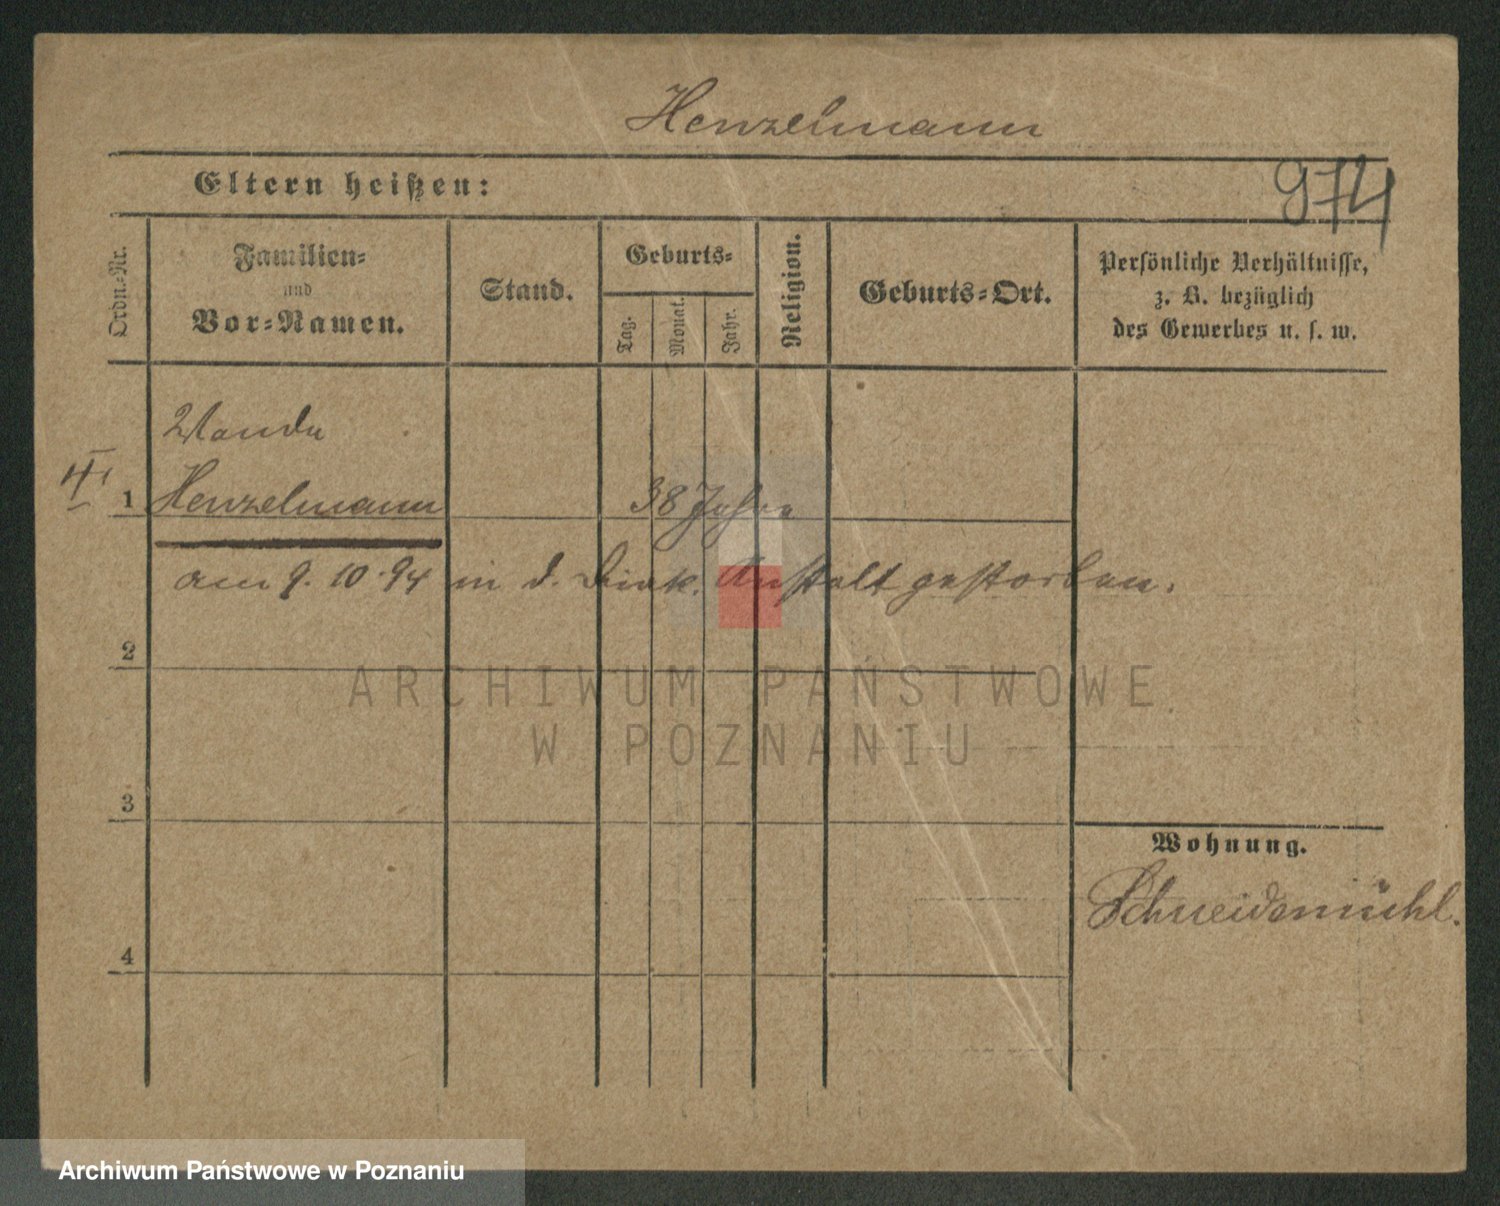 Henzelmann
Eltern heißen:
974
Ordn.-Nr.
Familien-
und
Vor-Namen.
Stand.
Geburts-
Tag.
Monat.
Jahr.
Religion.
Geburts-Ort.
Persönliche Verhältnisse,
z. B. bezüglich
des Gewerbes u. s. w.
Wanda
1 Henzelmann 38 Jahre
am 9. 10. 94 in d. Diak. Anstalt gestorben.
2
ARCHIWUM PAŃSTWOWE
W POZNANIU
3
Wohnung.
Schneidemühl.
4
Archiwum Państwowe w Poznaniu